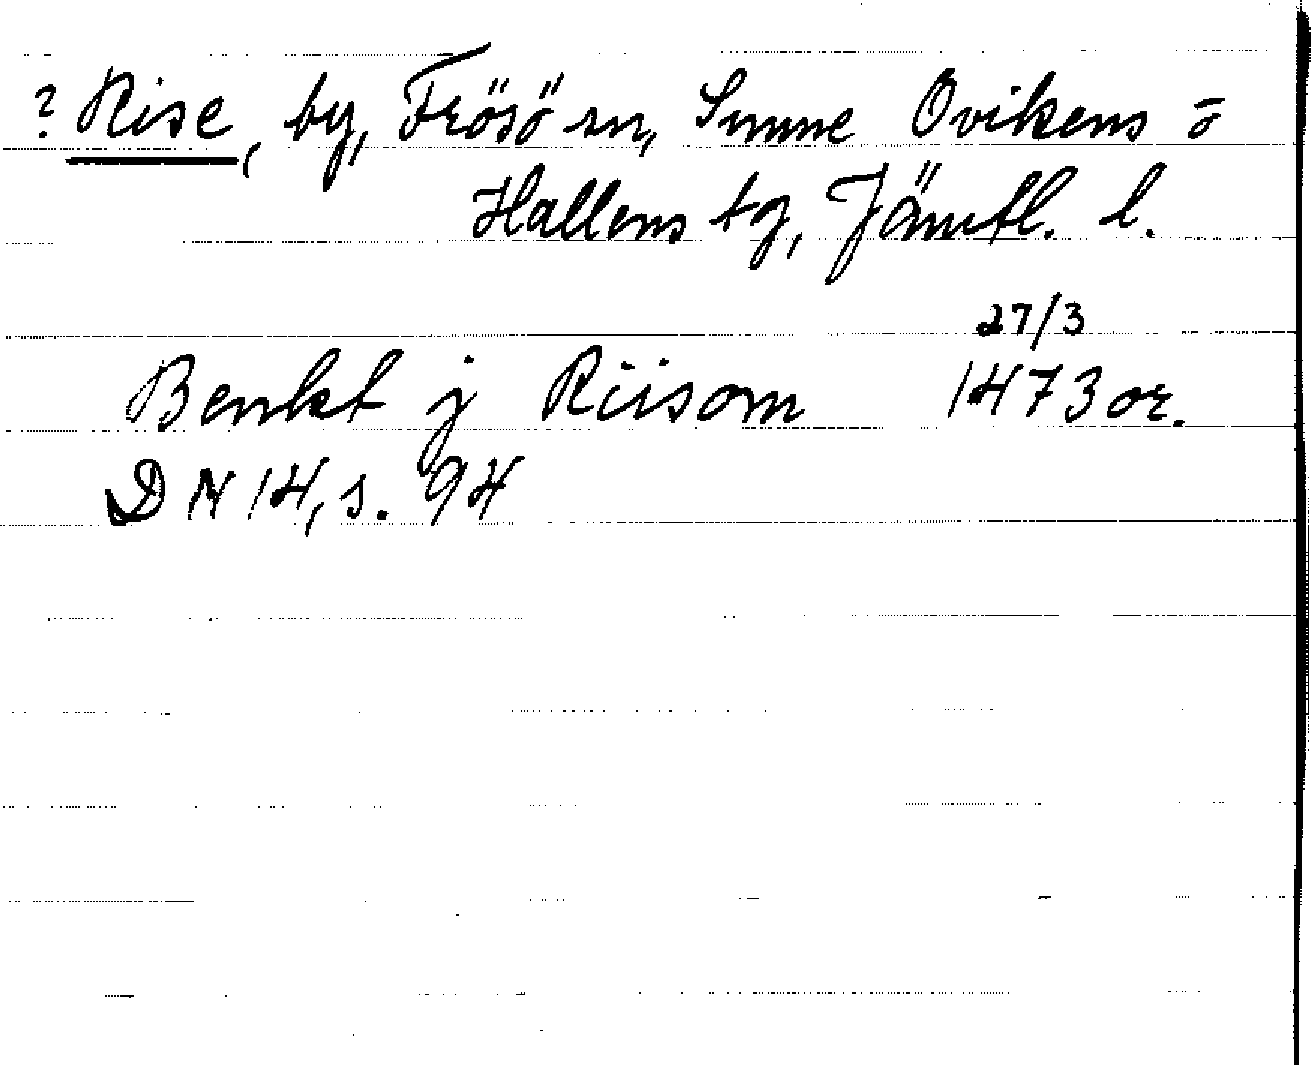 ? Rise, by, Frösö sn, Sunne Ovikens o
Hallens tg, Jämtl. l.
27/3
Benkt j Riisom 1473 or.
DN 14, s. 94